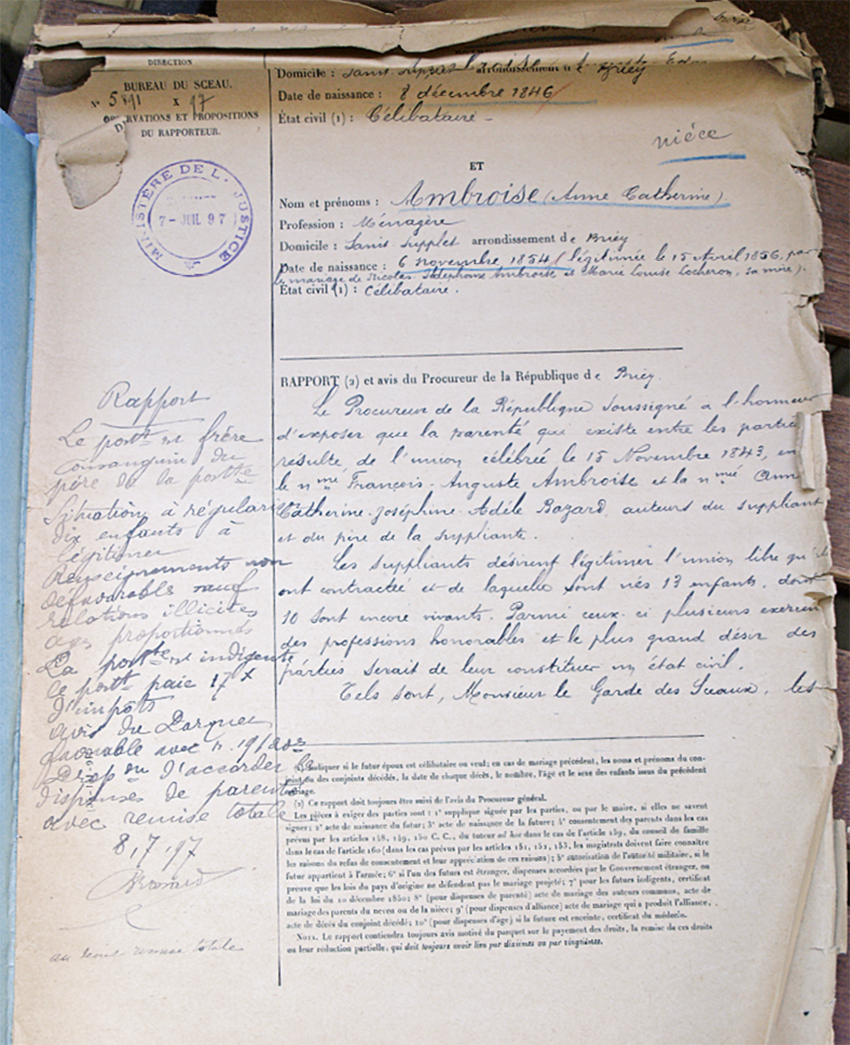 DIRECTION
BUREAU DU SCEAU.
N° 5891 X 97
OBSERVATIONS ET PROPOSITIONS
DU RAPPORTEUR.
MINISTÈRE DE L. JUSTICE
7 - JUIL 97
Domicile : arrondissement Briey
Date de naissance : 8 décembre 1846
État civil (1) : Célibataire -
nièce
ET
Nom et prénoms : Ambroise (Anne Catherine)
Profession : Ménagère
Domicile : Sanis Supplet arrondissement de Briéy
Date de naissance : 6 novembre 1854 (légitimée le 15 Avril 1856, par
le mariage de Nicolas Ambroise et Marie Louise Locheron, sa mère).
État civil (1) : Célibataire.
RAPPORT (2) et avis du Procureur de la République de Briéy.
Le Procureur de la République soussigné a l'honneur
d'exposer que la parenté qui existe entre les parties
résulte de l'union célébrée le 15 Novembre 1843, en
le nmé François-Auguste Ambroise et la nmé Ann
Catherine-Joséphine-Adèle Bazard, auteurs du suppliant
et du père de la suppliante.
Les suppliants désirent légitimer l'union libre qu'ils
ont contractée et de laquelle sont nés 13 enfants, dont
10 sont encore vivants. Parmi ceux-ci plusieurs exercent
des professions honorables et le plus grand désir des
parties serait de leur constituer un état civil.
Tels sont, Monsieur le Garde des Sceaux, les
Rapport
Le postt est frère
consanguin du
père de la postte
Situation à régulari
dix enfants à
légitimer
Renseignements non
défavorable sauf
relations illicites
ages proportionnés
La postte est indigente
le postt paie 17 x
d'impots
avis du Parquet
favorable avec r. 19/20es
Propon d'accorder les
dispenses de parenté
avec remise totale
8, 7, 97
au sceau remise totale
(1) Indiquer si le futur époux est célibataire ou veuf; en cas de mariage précédent, les noms et prénoms du con-
joint ou des conjoints décédés, la date de chaque décès, le nombre, l'âge et le sexe des enfants issus du précédent
mariage.
(2) Ce rapport doit toujours être suivi de l'avis du Procureur général.
Les pièces à exiger des parties sont : 1° supplique signée par les parties, ou par le maire, si elles ne savent
signer; 2° acte de naissance du futur; 3° acte de naissance de la future; 4° consentement des parents dans les cas
prévus par les articles 148, 149, 150 C. C., du tuteur ad hoc dans le cas de l'article 159, du conseil de famille
dans le cas de l'article 160 (dans les cas prévus par les articles 151, 152, 153, les magistrats doivent faire connaître
les raisons du refus de consentement et leur appréciation de ces raisons); 5° autorisation de l'autorité militaire, si le
futur appartient à l'armée; 6° si l'un des futurs est étranger, dispenses accordées par le Gouvernement étranger, ou
preuve que les lois du pays d'origine ne défendent pas le mariage projeté; 7° pour les futurs indigents, certificat
de la loi du 10 décembre 1850; 8° (pour dispenses de parenté) acte de mariage des auteurs communs, acte de
mariage des parents du neveu ou de la nièce; 9° (pour dispenses d'alliance) acte de mariage qui a produit l'alliance,
acte de décès du conjoint décédé; 10° (pour dispenses d'âge) si la future est enceinte, certificat du médecin.
NOTA. Le rapport contiendra toujours avis motivé du parquet sur le payement des droits, la remise de ces droits
ou leur réduction partielle, qui doit toujours avoir lieu par dixièmes ou par vingtièmes.